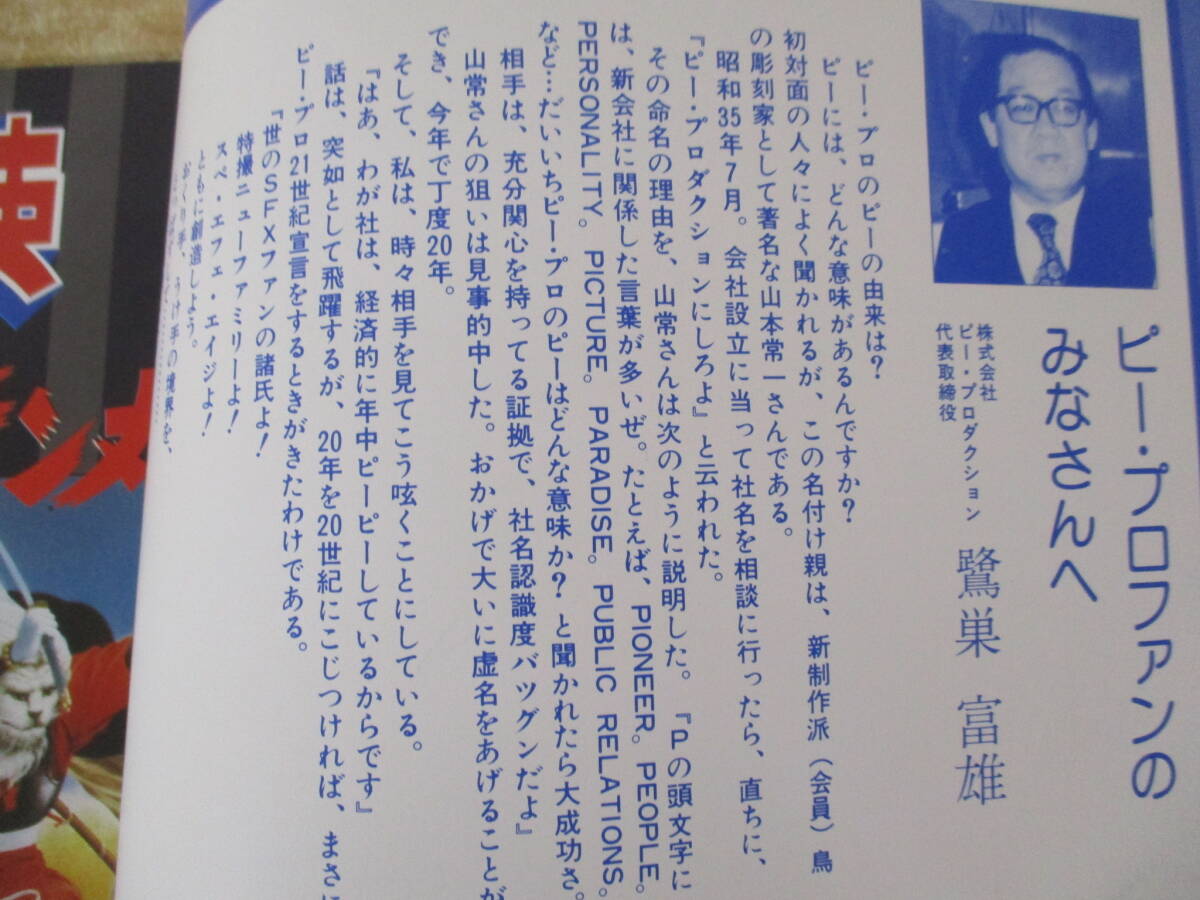 ピー・プロファンの
みなさんへ
株式会社
ピー・プロダクション
代表取締役
鷺巣 富雄
ピー・プロのピーの由来は?
ピーには、どんな意味があるんですか?
初対面の人々によく聞かれるが、この名付け親は、新制作派(会員)鳥
の彫刻家として著名な山本常一さんである。
昭和35年7月。会社設立に当って社名を相談に行ったら、直ちに、
『ピー・プロダクションにしろよ』と云われた。
その命名の理由を、山常さんは次のように説明した。『Pの頭文字に
は、新会社に関係した言葉が多いぜ。たとえば、PIONEER。PEOPLE。
PERSONALITY。PICTURE。PARADISE。PUBLIC RELATIONS。
など…だいいちピー・プロのピーはどんな意味か?と聞かれたら大成功さ。
相手は、充分関心を持ってる証拠で、社名認識度バツグンだよ』
山常さんの狙いは見事的中した。おかげで大いに虚名をあげることが
でき、今年で丁度20年。
そして、私は、時々相手を見てこう呟くことにしている。
『はあ、わが社は、経済的に年中ピーピーしているからです』
話は、突如として飛躍するが、20年を20世紀にこじつければ、まさに
ピー・プロ21世紀宣言をするときがきたわけである。
「世のSFXファンの諸氏よ!
特撮ニューファミリーよ!
スペ・エフェ・エイジよ!
ともに創造しよう。
おくり手、うけ手の境界を、